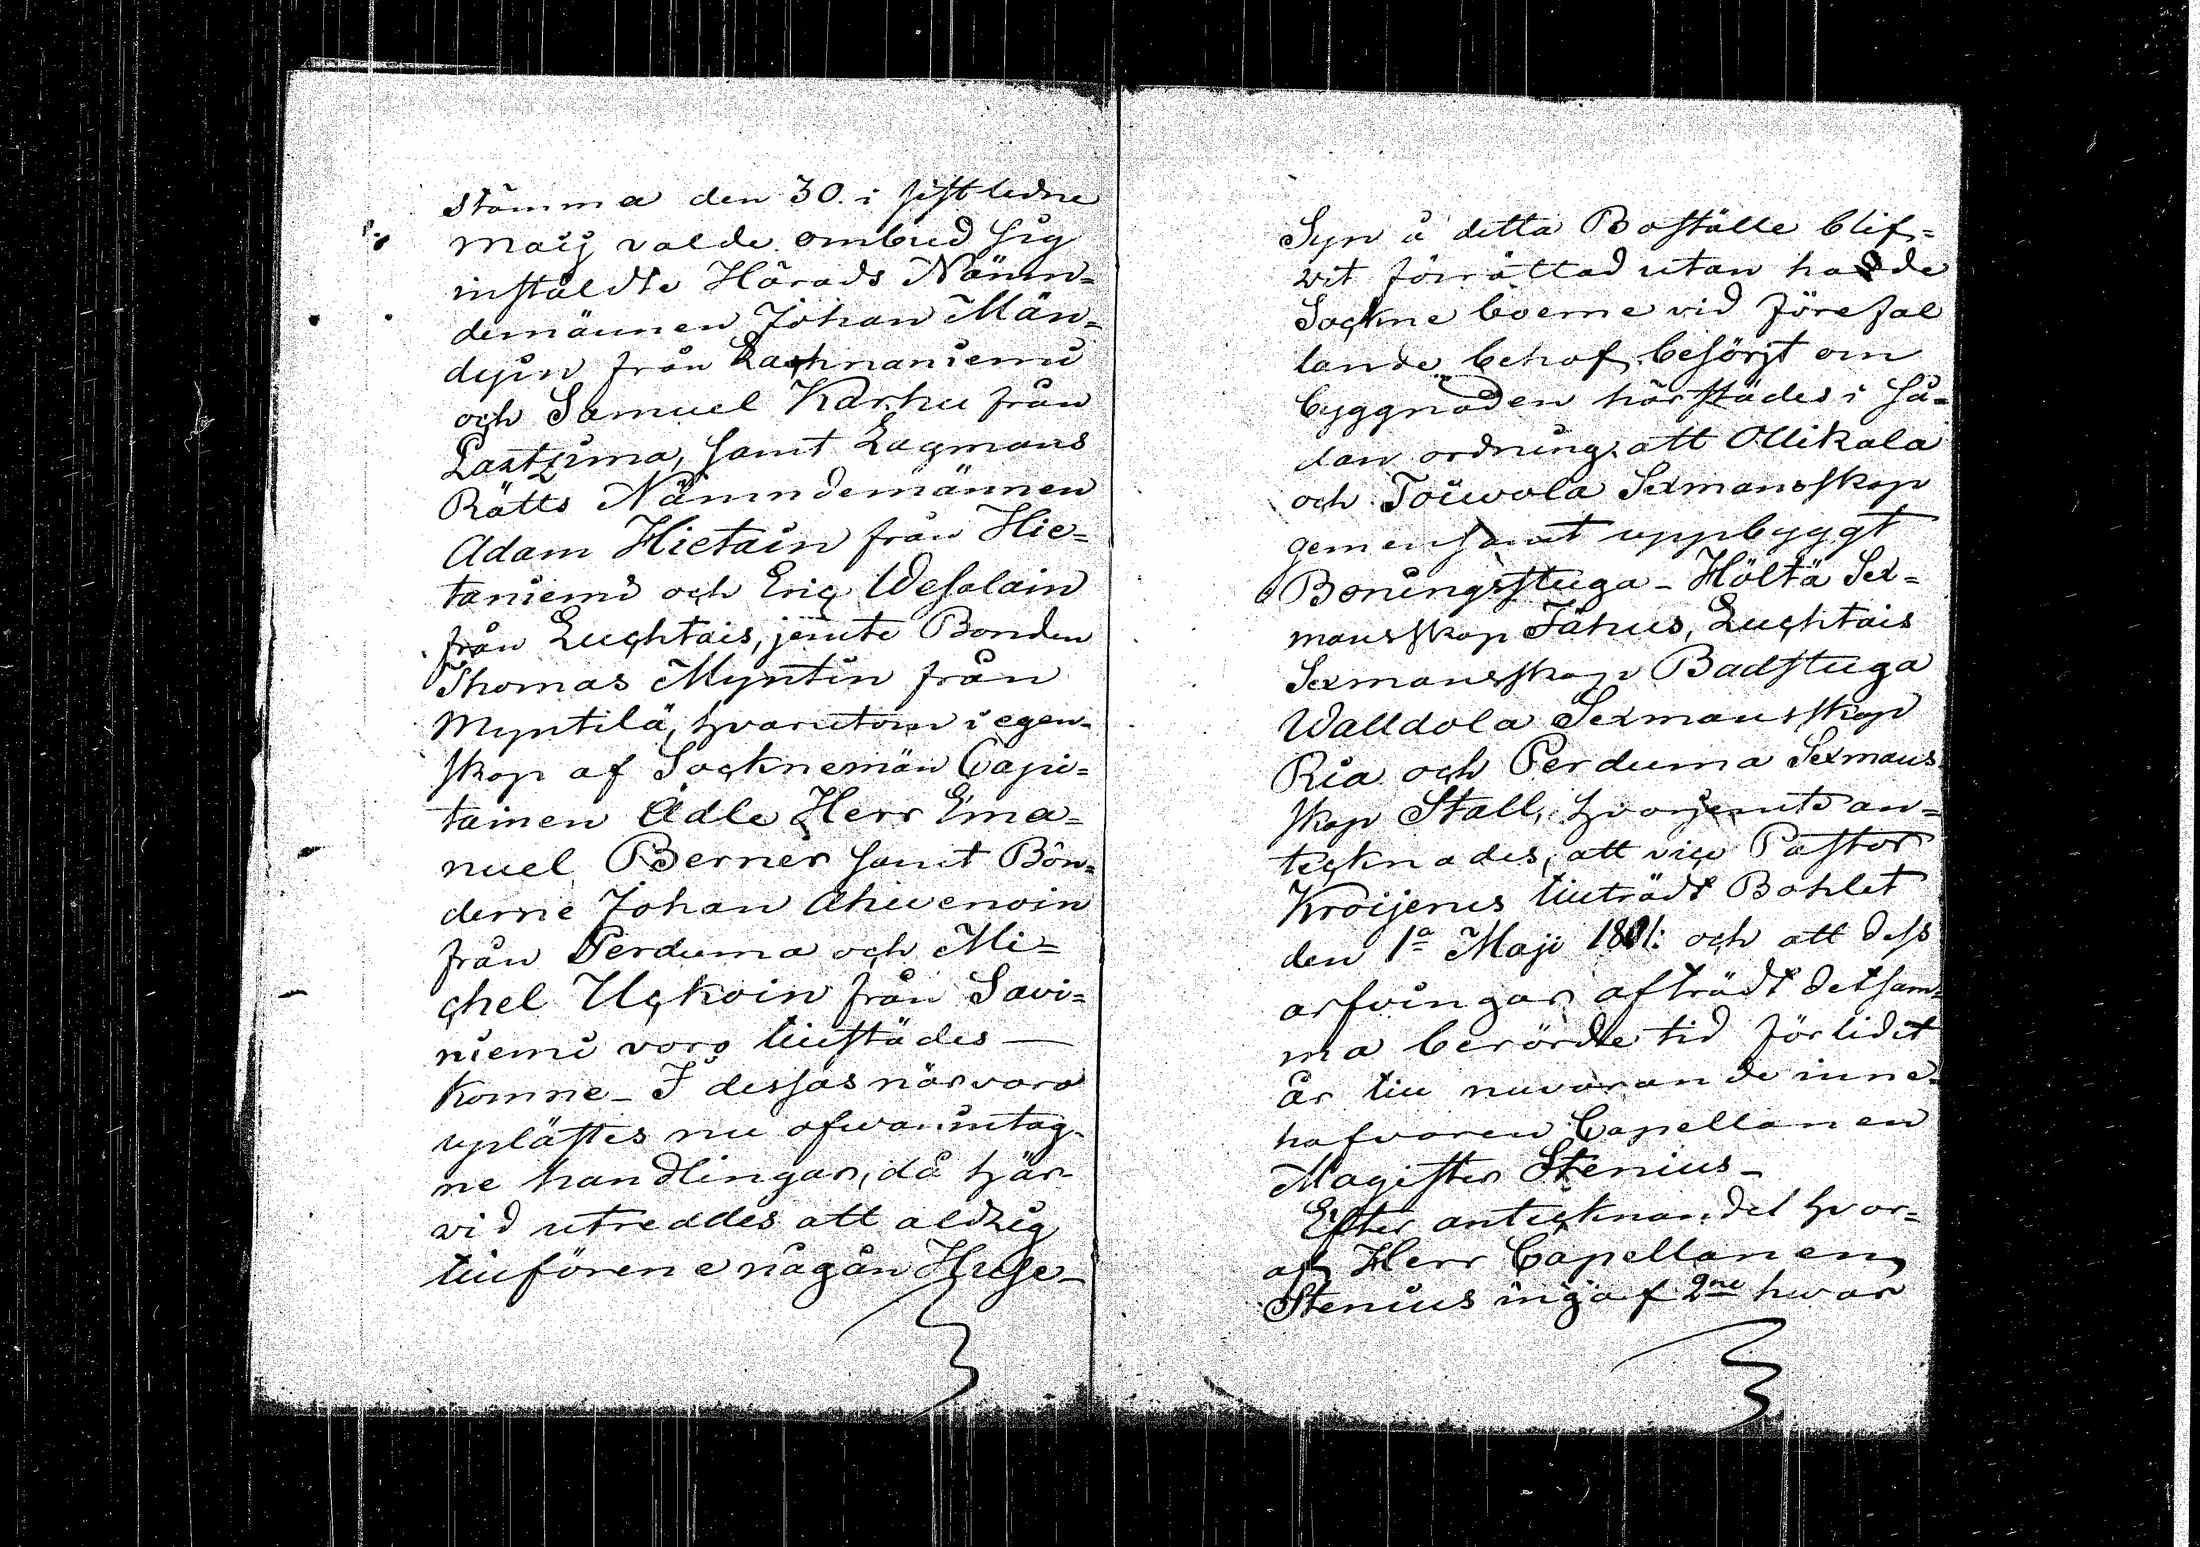 stämma den 30. i sistledne
Maij valde ombud sig
instäldte Härads Nämn=
demännen Johan Män=
dyin från Lachnaniemi
och Samuel Karhu från
samt Lagmans
Rätts Nämndemännen
Adam Hietain från Hie=
taniemi och Eric Wesalain
från Luchtais, jemte Bonden
Thomas Myntin från
Myntilä, hvarutom i egen=
skap af Socknemän Capi=
tainen Ädle Herr Ema=
nuel Berner samt Bön=
derne Johan Ahwenoin
från Perduma och Mi=
chel Uckoin från Savi=
niemi voro tillstädes —
komne – I dessas närvaro
uplästes nu ofwan intag=
ne handlingar, då här
vid utreddes att aldrig
tillförene någån Huse–
Syn å detta Boställe blif=
vit förrättad utan hade
Sockne boerne vid förefal
lande behof besörjt om
byggnaden härstädes i så=
dan ordning att Ollikala
och Toiwola Sexmansskap
gemensamt uppbyggt
Boningsstuga – Höltä Sex=
mansskap Fähus, Luchtais
Sexmansskap Badstuga
Walldola Sexmansskap
Ria och Perduma Sexmans
skap Stall, hvarjemte an=
tecknades, att vice Pastor
Kroijerus tillträdt Bohlet
den 1a Maji 1801: och att dess
arfvingar afträdt detsam=
ma berörde tid förlidit
år till nuvarande inne=
hafvaren Capellanen
Magister Stenius –
Efter antecknandet hvar=
af Herr Capellanen
Stenius ingaf 2ne hwar